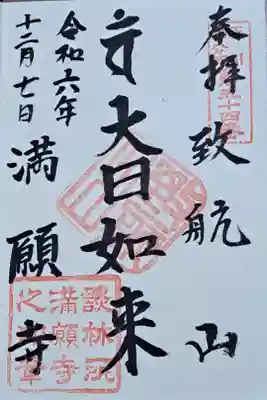 奉拝 致航山
大日如来
満願寺
令和六年
十二月七日
談林所
満願寺
之章